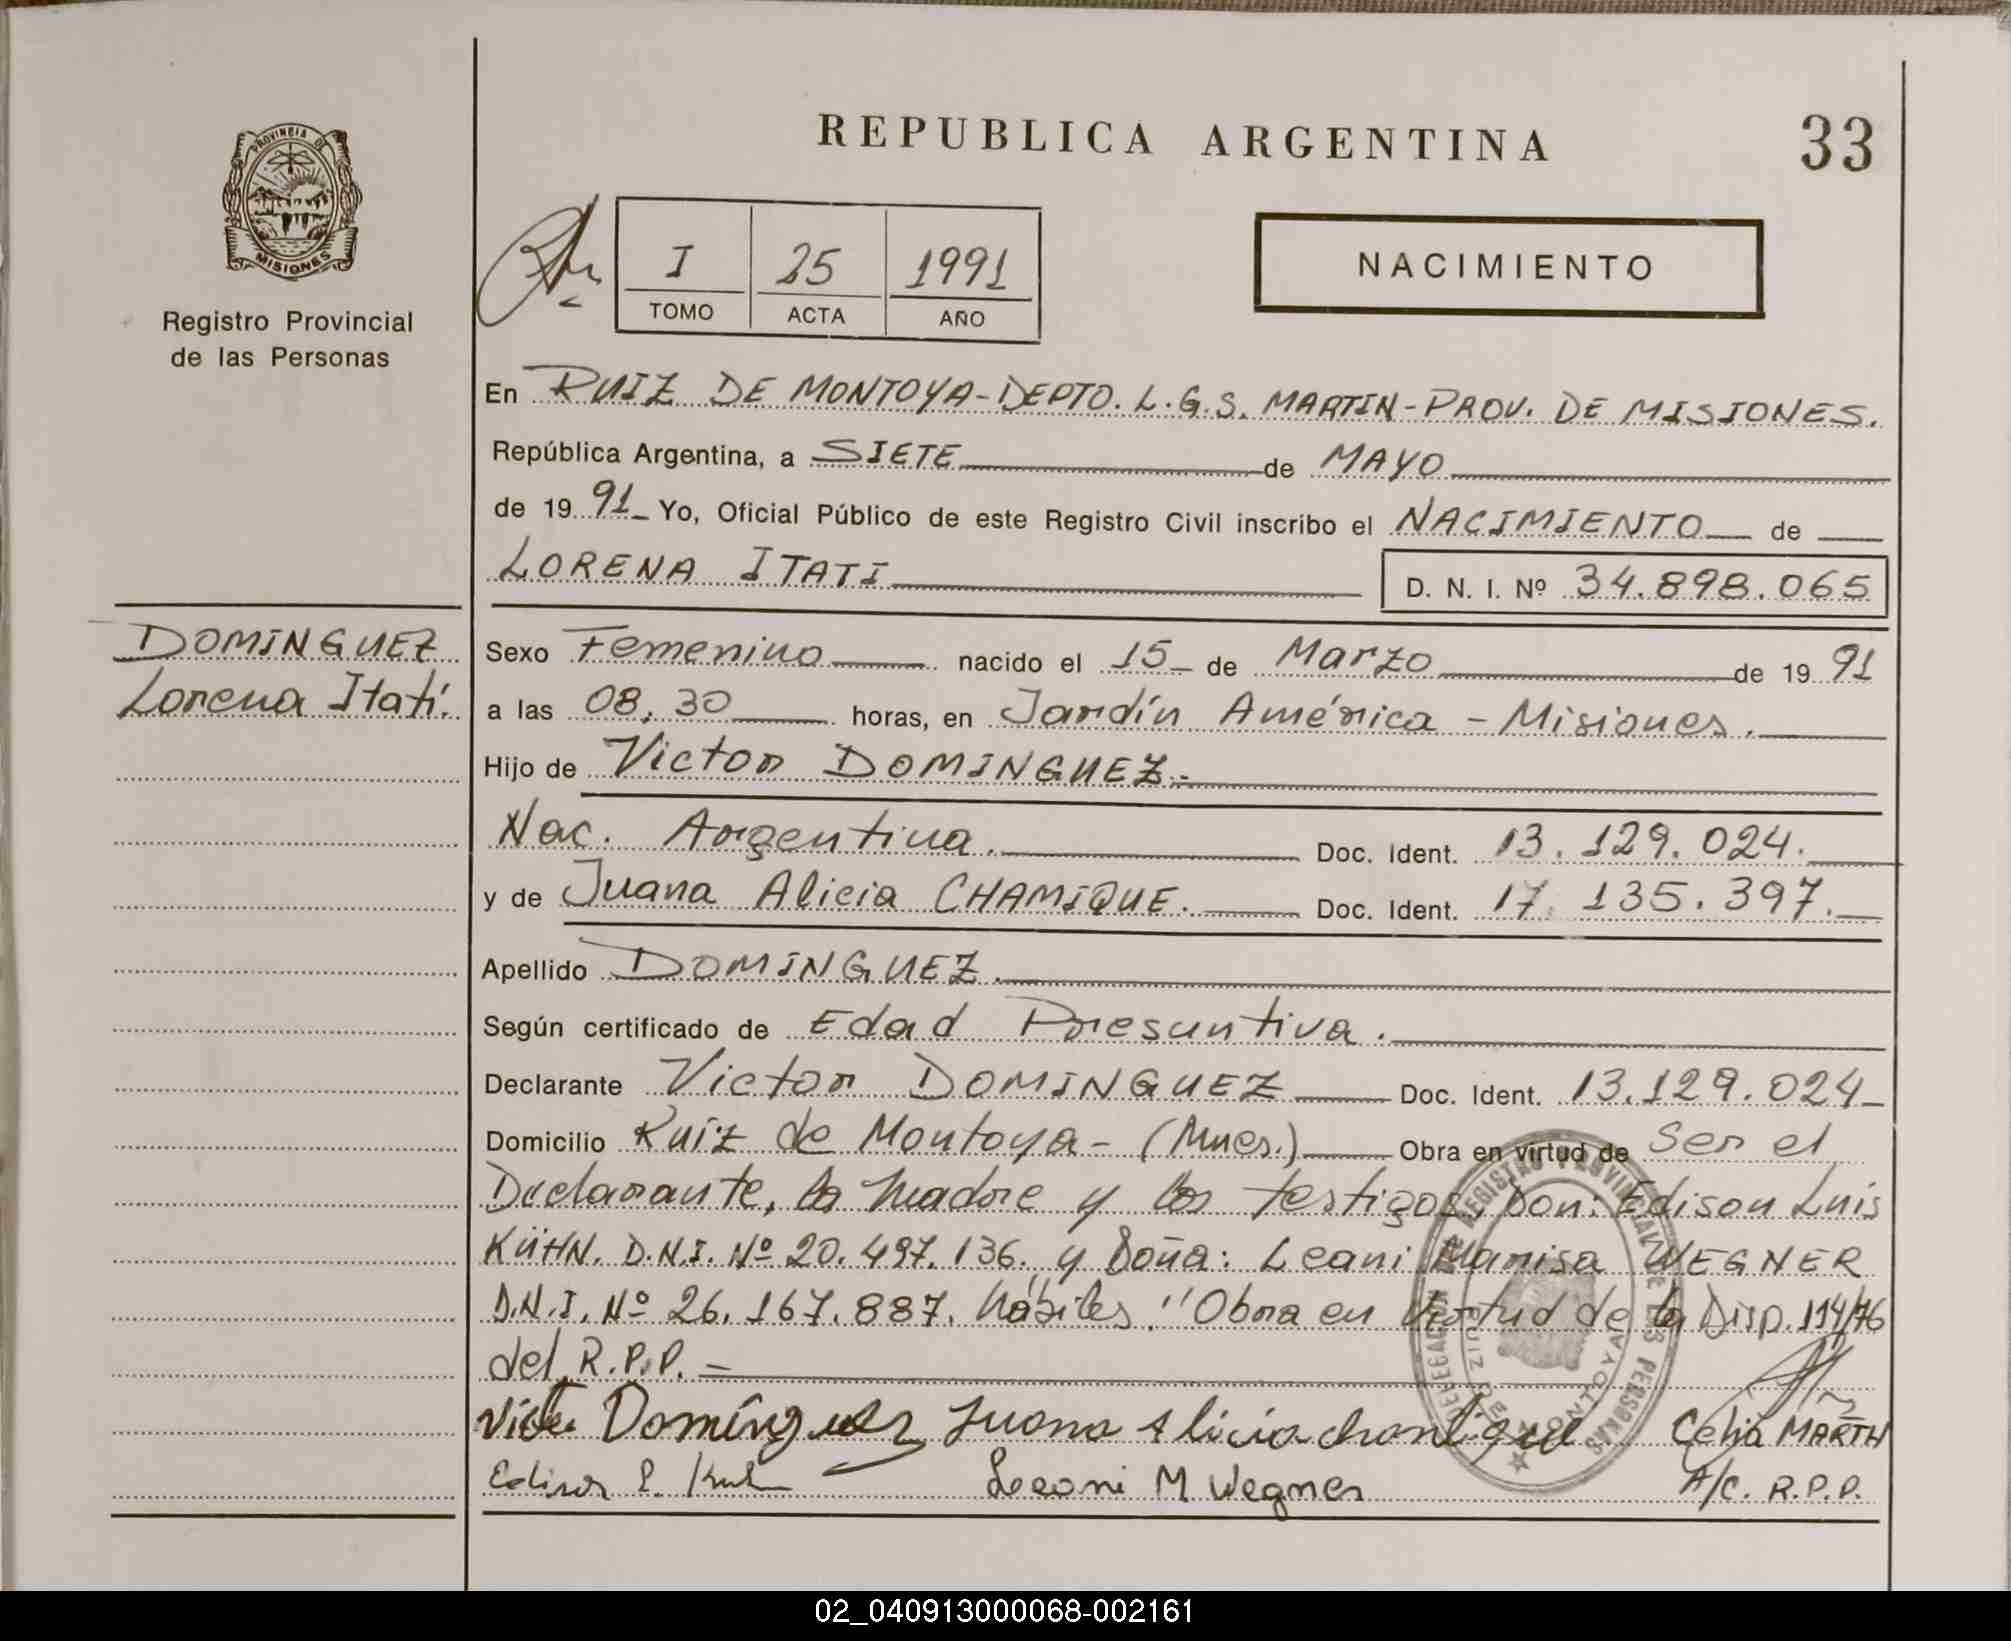 REPUBLICA ARGENTINA
33
PROVINCIA DE
MISIONES
Registro Provincial
de las Personas
I 25 1991
TOMO ACTA AÑO
NACIMIENTO
En RUIZ DE MONTOYA-DEPTO. L.G.S. MARTIN-PROV. DE MISIONES.
República Argentina, a SIETE de MAYO
de 1991 Yo, Oficial Público de este Registro Civil inscribo el NACIMIENTO de
LORENA ITATI D. N. I. Nº 34.898.065
DOMINGUEZ
Lorena Itatí.
Sexo Femenino nacido el 15 de Marzo de 1991
a las 08,30 horas, en Jardín América - Misiones.
Hijo de Victor DOMINGUEZ.-
Nac. Argentina. Doc. Ident. 13.129.024.
y de Juana Alicia CHAMIQUE. Doc. Ident. 17.135.397.
Apellido DOMINGUEZ.
Según certificado de Edad Presuntiva.
Declarante Victor DOMINGUEZ Doc. Ident. 13.129.024
Domicilio Ruiz de Montoya- (Mnes.) Obra en virtud de Ser el
Declarante, la madre y los testigos Don: Edison Luis
KÜHN. D.N.I. Nº 20.497.136. y Doña: Leani Marisa WEGNER
D.N.I. Nº 26.167.887. hábiles. "Obra en virtud de la Disp. 114/76
del R.P.P. -
DELEGACION DE REGISTRO PROVINCIAL DE LAS PERSONAS
RUIZ DE MONTOYA
Victor Domínguez Juana Alicia chamique Celia MARTH
Edison L. Kuhn Leoni M Wegner A/C. R.P.P.
02_040913000068-002161